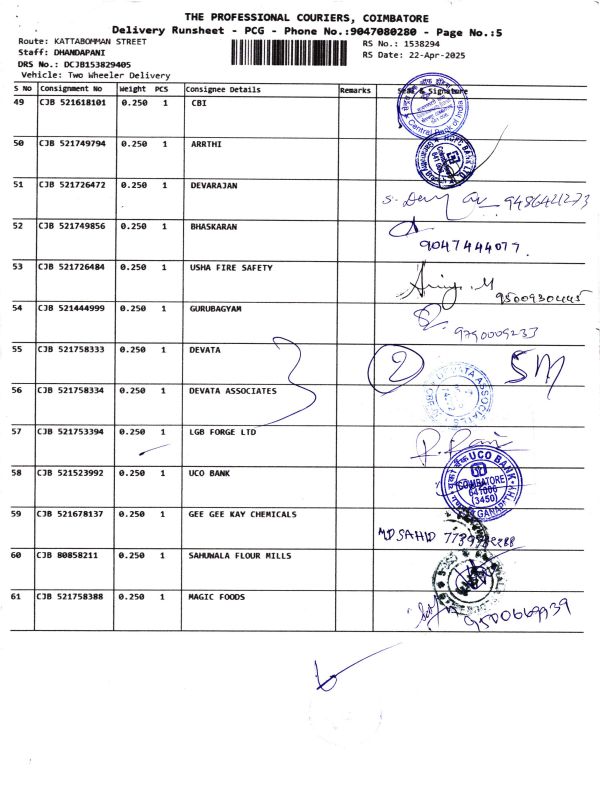 THE PROFESSIONAL COURIERS, COIMBATORE
Delivery Runsheet - PCG - Phone No.:9047080280 - Page No.:5
Route: KATTABOMMAN STREET
Staff: DHANDAPANI
DRS No.: DCJB153829405
Vehicle: Two Wheeler Delivery
RS No.: 1538294
RS Date: 22-Apr-2025
S No Consignment No Weight PCS Consignee Details Remarks Seal & Signature
49 CJB 521618101 0.250 1 CBI
Central Bank of India
50 CJB 521749794 0.250 1 ARRTHI
HDFC BANK LTD
51 CJB 521726472 0.250 1 DEVARAJAN
52 CJB 521749856 0.250 1 BHASKARAN
9047444077
53 CJB 521726484 0.250 1 USHA FIRE SAFETY
54 CJB 521444999 0.250 1 GURUBAGYAM
9790009233
55 CJB 521758333 0.250 1 DEVATA
2 SM
56 CJB 521758334 0.250 1 DEVATA ASSOCIATES
DEVATA ASSOCIATES
57 CJB 521753394 0.250 1 LGB FORGE LTD
58 CJB 521523992 0.250 1 UCO BANK
UCO BANK
COIMBATORE
641006
(3450)
59 CJB 521678137 0.250 1 GEE GEE KAY CHEMICALS
MD SAHID
60 CJB 80858211 0.250 1 SAHUNALA FLOUR MILLS
61 CJB 521758388 0.250 1 MAGIC FOODS
9500669939